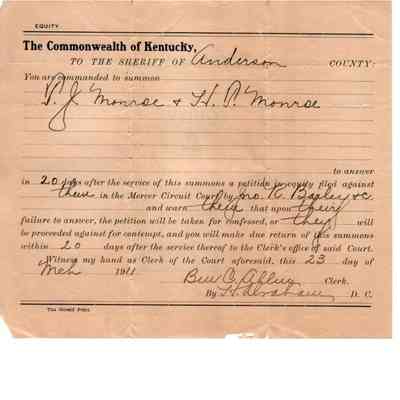 EQUITY
The Commonwealth of Kentucky,
TO THE SHERIFF OF Anderson COUNTY:
You are commanded to summon
P. J. Monroe & H. P. Monroe
to answer
in 20 days after the service of this summons a petition in equity filed against
them in the Mercer Circuit Court by Jno. R. Bagley &c
and warn them that upon their
failure to answer, the petition will be taken for confessed, or they will
be proceeded against for contempt, and you will make due return of this summons
within 20 days after the service thereof to the Clerk's office of said Court.
Witness my hand as Clerk of the Court aforesaid, this 23 day of
Mch 1911 Ben C. Clerk.
By D. C.
The Herald Print.